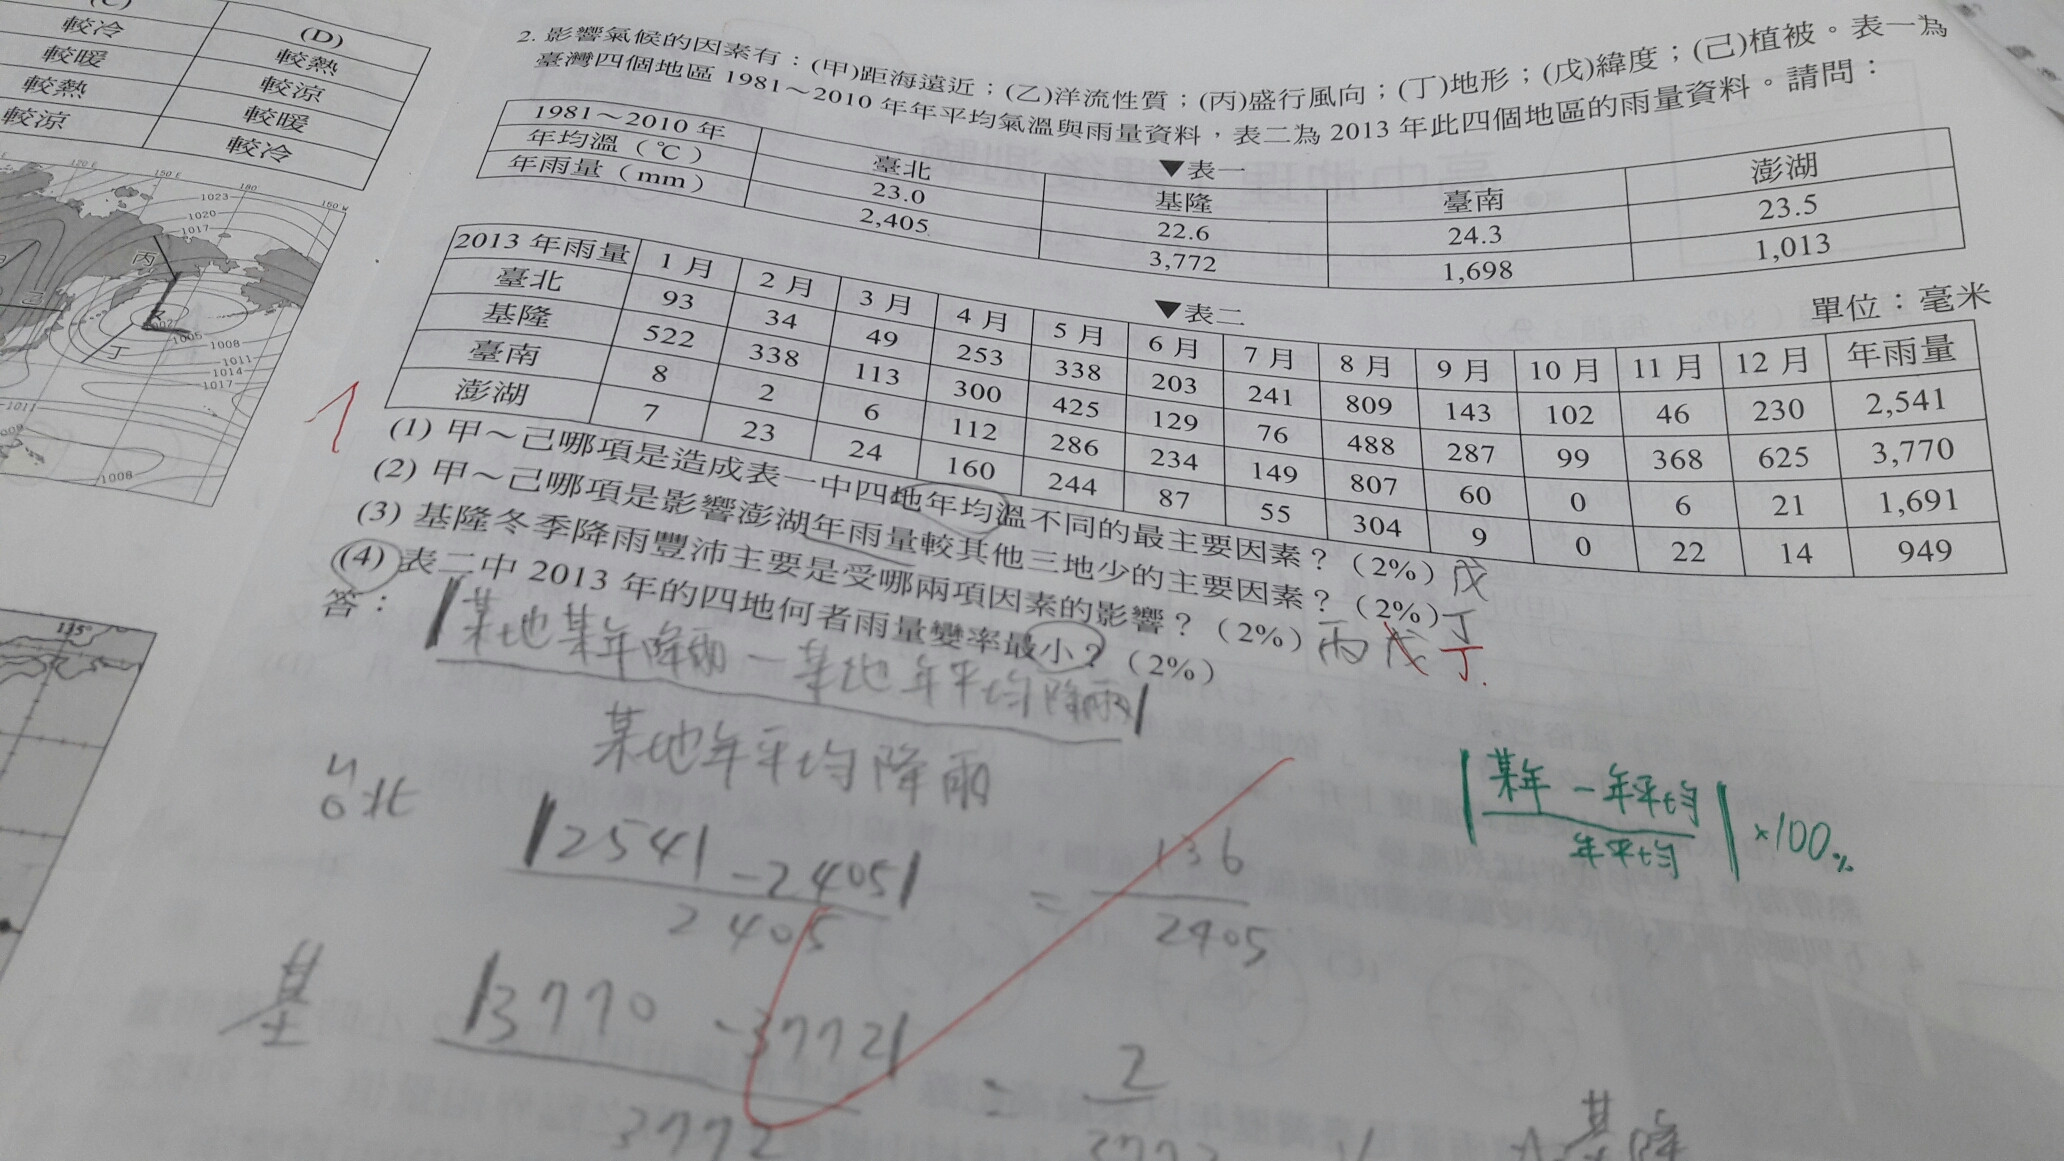 (C)
(D)
較冷
較熱
較暖
較涼
較熱
較暖
較涼
較冷
120 E
150 E
180
150 W
1023
1020
1017
丙
己
丁
1005
1008
1011
1014
1017
1011
1008
115°
2. 影響氣候的因素有：(甲)距海遠近；(乙)洋流性質；(丙)盛行風向；(丁)地形；(戊)緯度；(己)植被。表一為
臺灣四個地區 1981～2010 年年平均氣溫與雨量資料，表二為 2013 年此四個地區的雨量資料。請問：
▼表一
1981～2010 年 臺北 基隆 臺南 澎湖
年均溫（℃） 23.0 22.6 24.3 23.5
年雨量（mm） 2,405 3,772 1,698 1,013
▼表二
單位：毫米
2013 年雨量 1 月 2 月 3 月 4 月 5 月 6 月 7 月 8 月 9 月 10 月 11 月 12 月 年雨量
臺北 93 34 49 253 338 203 241 809 143 102 46 230 2,541
基隆 522 338 113 300 425 129 76 488 287 99 368 625 3,770
臺南 8 2 6 112 286 234 149 807 60 0 6 21 1,691
澎湖 7 23 24 160 244 87 55 304 9 0 22 14 949
1
(1) 甲～己哪項是造成表一中四地年均溫不同的最主要因素？（2%）戊
(2) 甲～己哪項是影響澎湖年雨量較其他三地少的主要因素？（2%）丁
(3) 基隆冬季降雨豐沛主要是受哪兩項因素的影響？（2%）丙 戊 丁
(4) 表二中 2013 年的四地何者雨量變率最小？（2%）
答：
|某地某年降雨 - 某地年平均降雨|
某地年平均降雨
|某年 - 年平均| ×100%
年平均
台北
|2541 - 2405| = 136
2405 2405
基
|3770 - 3772| = 2
3772 3772
基隆